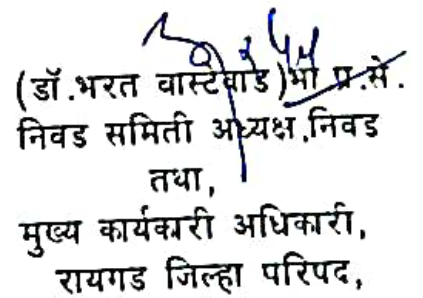 (डॉ.भरत वास्टेवाड)भा प्र.से.
निवड समिती अध्यक्ष,निवड
तथा,
मुख्य कार्यकारी अधिकारी,
रायगड जिल्हा परिषद,